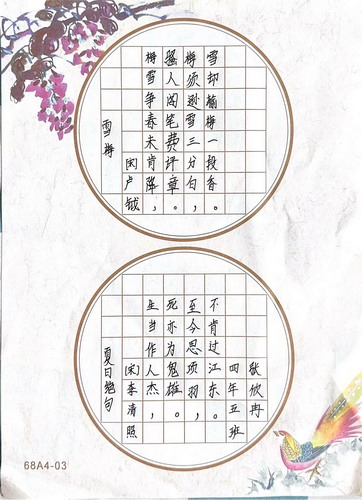 雪梅
(宋)卢钺
梅雪争春未肯降，
骚人阁笔费评章。
梅须逊雪三分白，
雪却输梅一段香。
夏日绝句
(宋)李清照
生当作人杰，
死亦为鬼雄。
至今思项羽，
不肯过江东。
四年五班
张欣冉
68A4-03